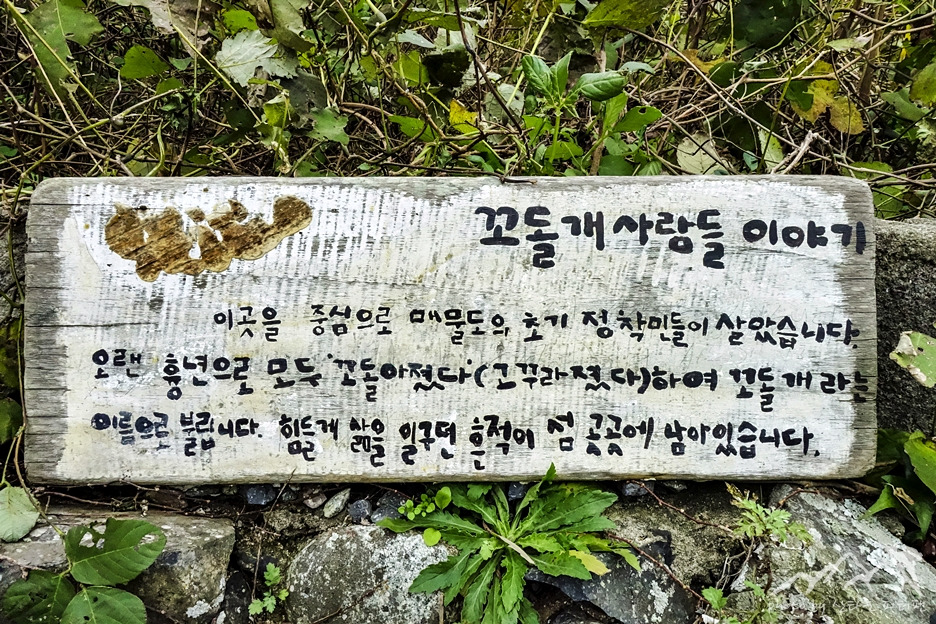 꼬돌개 사람들 이야기
이곳을 중심으로 매물도의 초기 정착민들이 살았습니다.
오랜 흉년으로 모두 '꼬돌아졌다'(고꾸라졌다)하여 꼬돌개라는
이름으로 불립니다. 힘들게 삶을 일구던 흔적이 섬 곳곳에 남아있습니다.